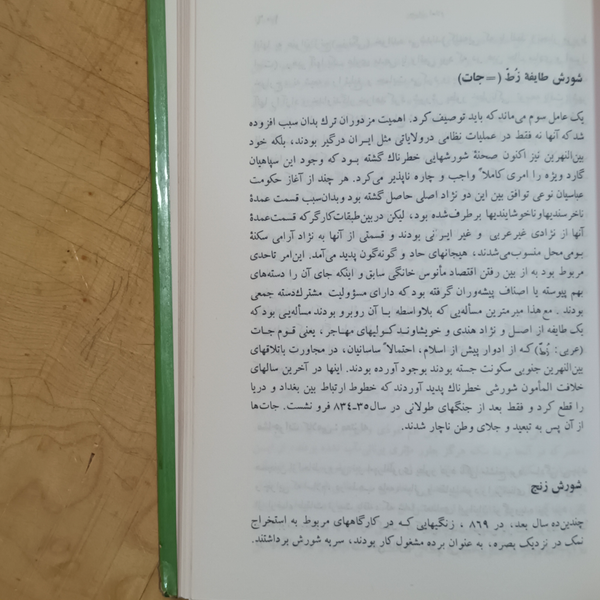 شورش طایفهٔ زُطّ (= جات)
یک عامل سوم می‌ماند که باید توصیف کرد. اهمیت مزدوران ترك بدان سبب افزوده
شد که آنها نه فقط در عملیات نظامی درولایاتی مثل ایران درگیر بودند، بلکه خود
بین‌النهرین نیز اکنون صحنهٔ شورشهایی خطرناك گشته بود که وجود این سپاهیان
گارد ویژه را امری کاملاً واجب و چاره ناپذیر می‌کرد. هر چند از آغاز حکومت
عباسیان نوعی توافق بین این دو نژاد اصلی حاصل گشته بود وبدان‌سبب قسمت عمدهٔ
ناخرسندیهاوناخوشایندیها برطرف‌شده بود، لیکن دربین‌طبقات‌کارگر که قسمت‌عمدهٔ
آنها از نژادی غیرعربی و غیر ایرانی بودند و قسمتی از آنها به نژاد آرامی سکنهٔ
بومی‌محل منسوب‌می‌شدند، هیجانهای حاد و گونه‌گون پدید می‌آمد. این‌امر تاحدی
مربوط بود به از بین رفتن اقتصاد مأنوس خانگی سابق و اینکه جای آن را دسته‌های
بهم پیوسته یا اصناف پیشه‌وران گرفته بود که دارای مسؤولیت مشترك‌دسته جمعی
بودند . مع‌هذا مبرمترین مسأله‌یی که بلاواسطه بـا آن روبرو بودند مسأله‌یی بودکه
یک طایفه از اصل و نژاد هندی و خویشاوند کولیهای مهاجر، یعنی قوم جات
(عربی: زُطّ) که از ادوار پیش از اسلام، احتمالاً ساسانیان، در مجاورت باتلاقهای
بین‌النهرین جنوبی سکونت جسته بودند بوجود آورده بودند. اینها در آخرین سالهای
خلافت المأمون شورشی خطرناك پدید آوردند که خطوط ارتباط بین بغداد و دریا
را قطع کرد و فقط بعد از جنگهای طولانی در سال ۳۵-۸۳۴ فرو نشست. جات‌ها
از آن پس به تبعید و جلای وطن ناچار شدند.
شورش زنج
چندین‌ده سال بعد، در ۸۶۹ ، زنگیهایی که در کارگاههای مربوط به استخراج
نمک در نزدیک بصره، به عنوان برده مشغول کار بودند، سر به شورش برداشتند.